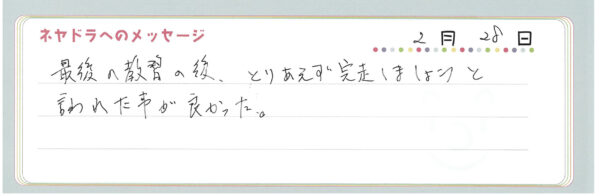 ネヤドラへのメッセージ
2月 28日
最後の教習の後、とりあえず完走しましょうと
言われた事が良かった。